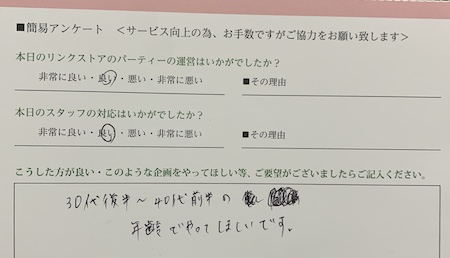 ■簡易アンケート ＜サービス向上の為、お手数ですがご協力をお願い致します＞
本日のリンクストアのパーティーの運営はいかがでしたか？
非常に良い・良い・悪い・非常に悪い ■その理由
本日のスタッフの対応はいかがでしたか？
非常に良い・良い・悪い・非常に悪い ■その理由
こうした方が良い・このような企画をやってほしい等、ご要望がございましたらご記入ください。
30代後半～40代前半の
年齢でやってほしいです。